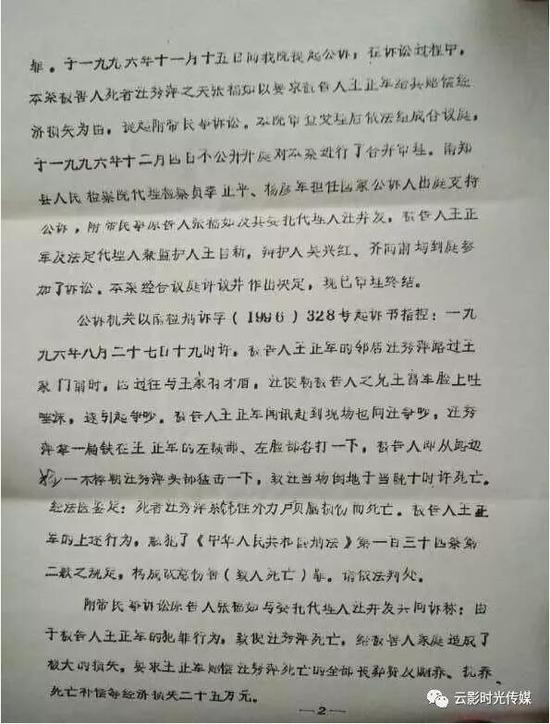 罪。于一九九六年十一月十五日向我院提起公诉，在诉讼过程中，
本案被害人死者汪秀萍之夫张福如以要求被告人王正军给其赔偿经
济损失为由，提起附带民事诉讼。本院审查受理后依法组成合议庭，
于一九九六年十二月四日不公开开庭对本案进行了合并审理。南郑
县人民检察院代理检察员李正平、杨彦军担任国家公诉人出庭支持
公诉，附带民事原告人张福如及其委托代理人汪开发，被告人王正
军及法定代理人兼监护人王自新，辩护人吴兴红、齐向南均到庭参
加了诉讼。本案经合议庭评议并作出决定，现已审理终结。
公诉机关以南检刑诉字（1996）328号起诉书指控：一九
九六年八月二十七日十九时许，被告人王正军的邻居汪秀萍路过王
家门前时，因过往与王家有矛盾，汪便朝被告人之兄王富军脸上吐
唾沫，遂引起争吵。被告人王正军闻讯赶到现场也同汪争吵，汪秀
萍拿一扁铁在王正军的左额部、左脸部各打一下，被告人即从路边
拣一木棒朝汪秀萍头部猛击一下，致汪当场倒地于当晚十时许死亡。
经法医鉴定：死者汪秀萍系钝性外力颅脑损伤而死亡。被告人王正
军的上述行为，触犯了《中华人民共和国刑法》第一百三十四条第
二款之规定，构成故意伤害（致人死亡）罪。请依法判处。
附带民事诉讼原告人张福如与委托代理人汪开发共同诉称：由
于被告人王正军的犯罪行为，致使汪秀萍死亡，给被害人家庭造成了
极大的损失，要求王正军赔偿汪秀萍死亡的全部丧葬费及赡养、抚养、
死亡补偿等经济损失二十五万元。
—2—
云影时光传媒